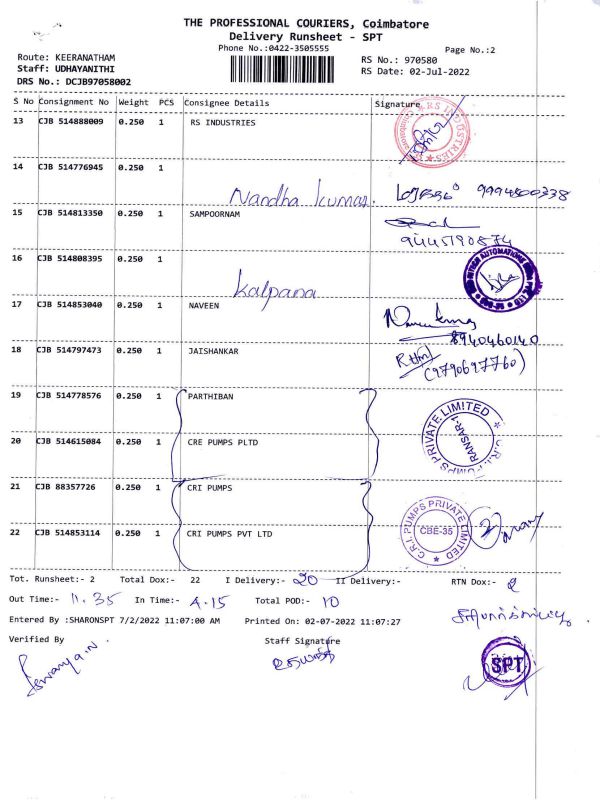 THE PROFESSIONAL COURIERS, Coimbatore
Delivery Runsheet - SPT
Phone No.:0422-3505555
Page No.:2
Route: KEERANATHAM
RS No.: 970580
Staff: UDHAYANITHI
RS Date: 02-Jul-2022
DRS No.: DCJB97058002
S No Consignment No Weight PCS Consignee Details Signature
13 CJB 514888009 0.250 1 RS INDUSTRIES
RS INDUSTRIES
14 CJB 514776945 0.250 1
Nandha kumar. 9994500338
15 CJB 514813350 0.250 1 SAMPOORNAM
9445190574
16 CJB 514808395 0.250 1
Kalpana
17 CJB 514853040 0.250 1 NAVEEN
8940460140
18 CJB 514797473 0.250 1 JAISHANKAR
(9790697760)
19 CJB 514778576 0.250 1 PARTHIBAN
C.R.I. PUMPS PRIVATE LIMITED
20 CJB 514615084 0.250 1 CRE PUMPS PLTD
21 CJB 88357726 0.250 1 CRI PUMPS
C.R.I. PUMPS PRIVATE LIMITED
CBE-35
22 CJB 514853114 0.250 1 CRI PUMPS PVT LTD
Tot. Runsheet:- 2 Total Dox:- 22 I Delivery:- 20 II Delivery:- RTN Dox:- 2
Out Time:- 11.35 In Time:- 4.15 Total POD:- 10
Entered By :SHARONSPT 7/2/2022 11:07:00 AM Printed On: 02-07-2022 11:07:27
Verified By Staff Signature
SPT